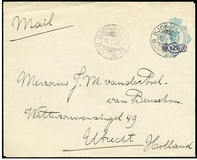 Mail
Mevrouw J. M. van der Poel-
van Beusekom
Wittevrouwensingel 49
Utrecht
Holland